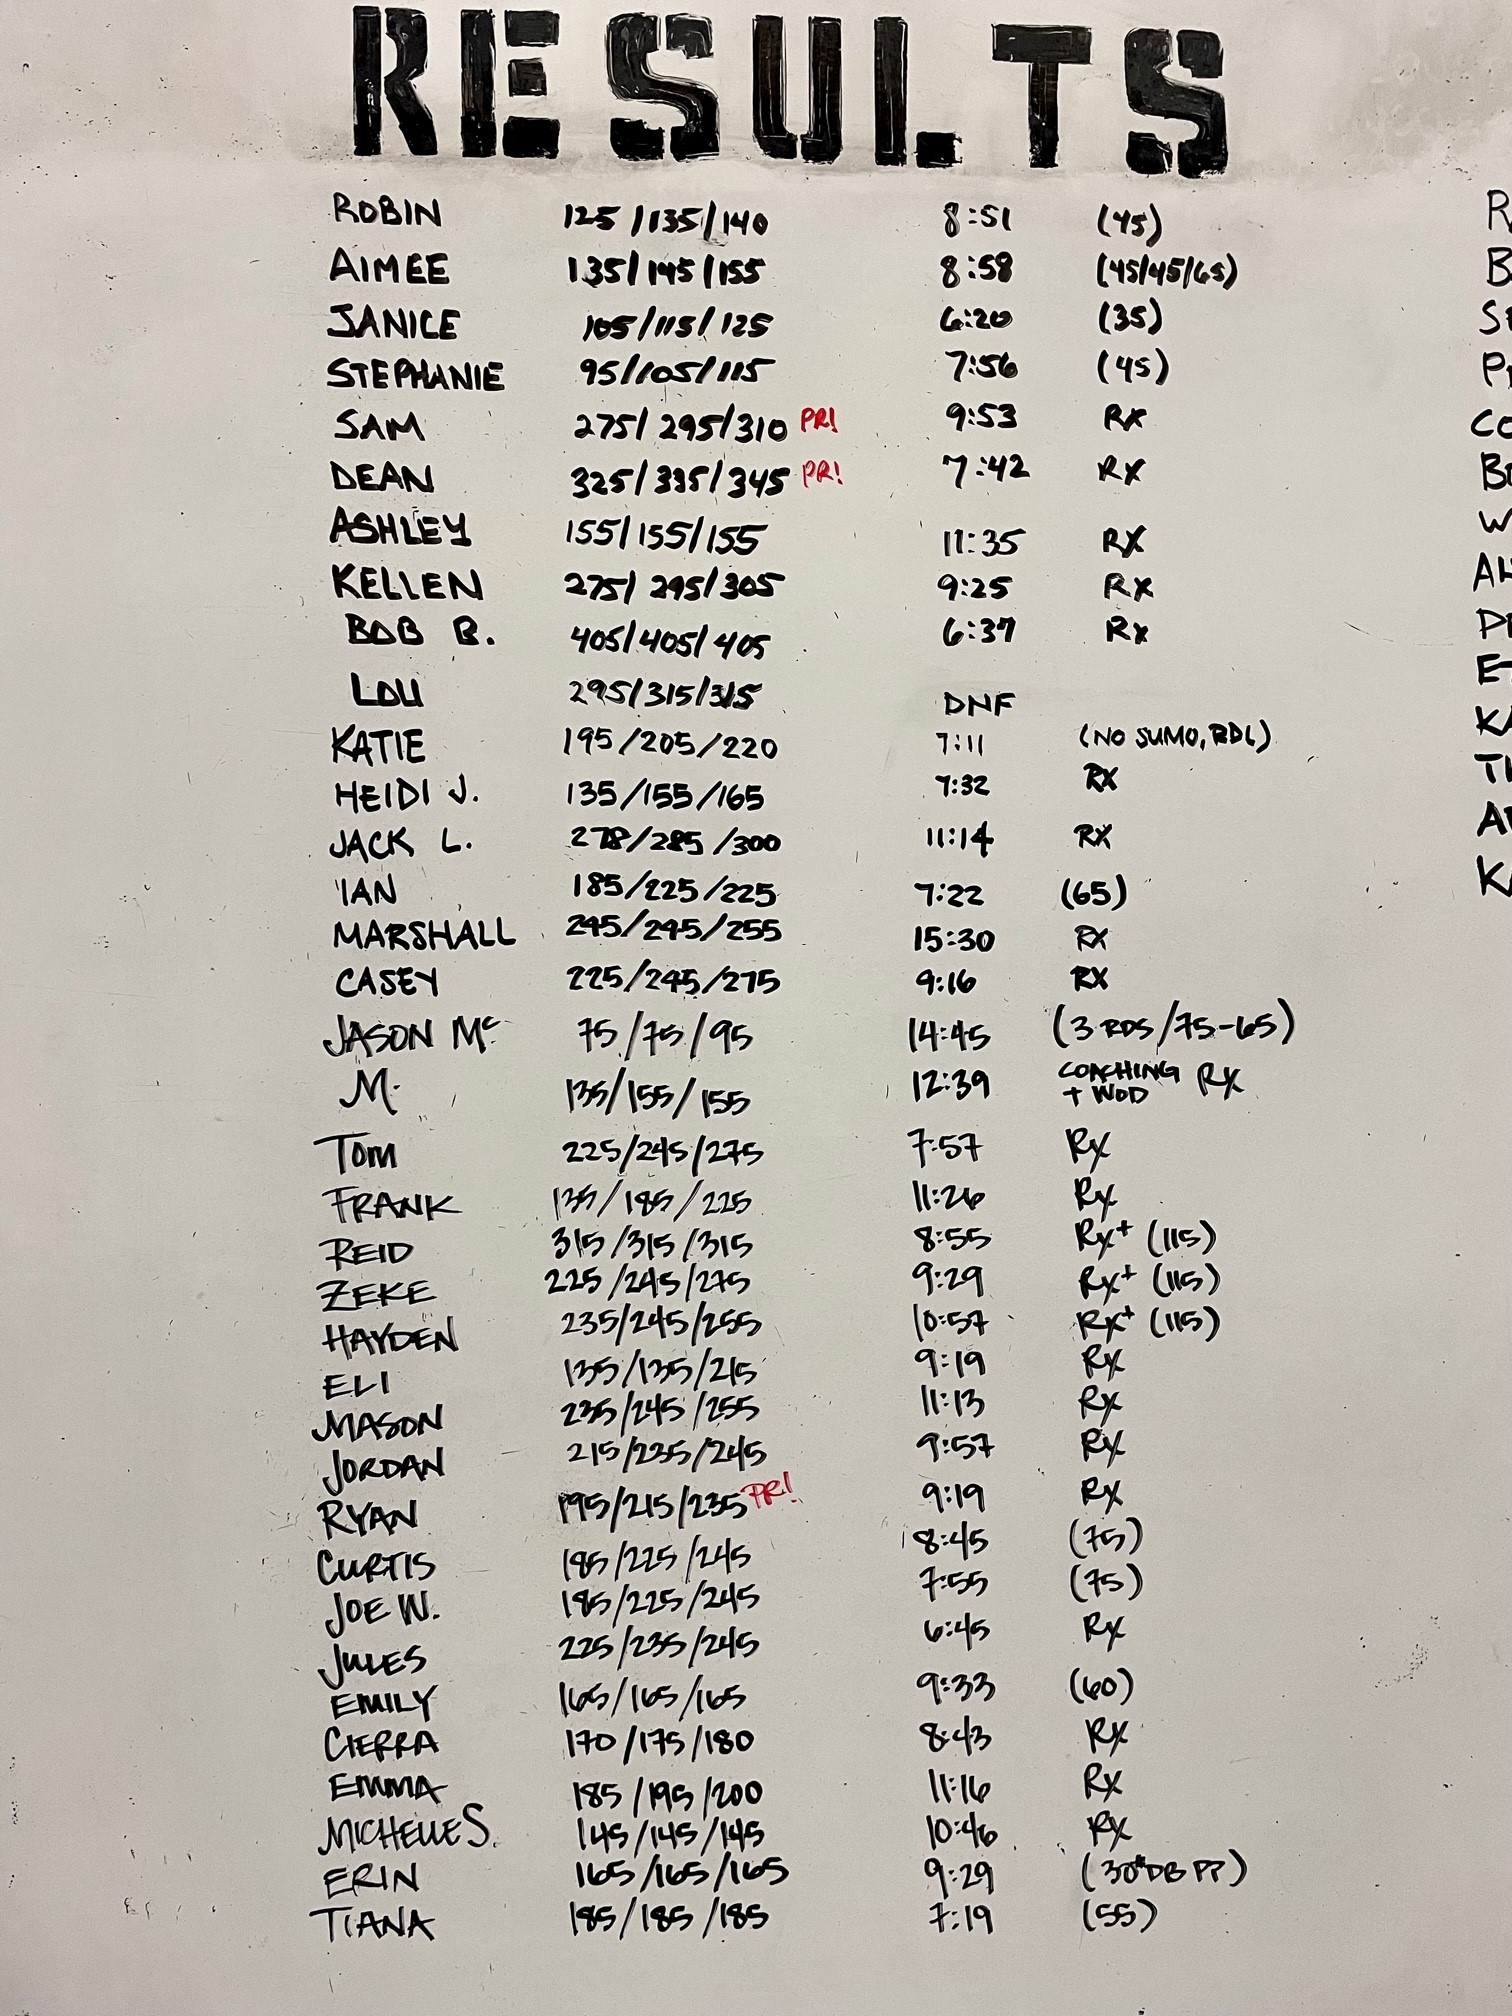 RESULTS
ROBIN 125/135/140 8:51 (45)
AIMEE 135/145/155 8:58 (45/45/65)
JANICE 105/115/125 6:20 (35)
STEPHANIE 95/105/115 7:56 (45)
SAM 275/295/310 PR! 9:53 Rx
DEAN 325/335/345 PR! 7:42 Rx
ASHLEY 155/155/155 11:35 Rx
KELLEN 275/295/305 9:25 Rx
BOB B. 405/405/405 6:37 Rx
LOU 295/315/315 DNF
KATIE 195/205/220 7:11 (NO SUMO, RDL)
HEIDI J. 135/155/165 7:32 RX
JACK L. 275/285/300 11:14 RX
IAN 185/225/225 7:22 (65)
MARSHALL 245/245/255 15:30 RX
CASEY 225/245/275 9:16 RX
JASON Mc 75/75/95 14:45 (3 RDS/75-65)
M. 135/155/155 12:39 COACHING + WOD RX
TOM 225/245/275 7:57 Rx
FRANK 135/185/225 11:26 Rx
REID 315/315/315 8:55 Rx+ (115)
ZEKE 225/245/275 9:29 Rx+ (115)
HAYDEN 235/245/255 10:57 Rx+ (115)
ELI 135/135/215 9:19 Rx
MASON 235/245/255 11:13 Rx
JORDAN 215/235/245 9:57 Rx
RYAN 195/215/235 PR! 9:19 Rx
CURTIS 185/225/245 8:45 (75)
JOE W. 185/225/245 7:55 (75)
JULES 225/235/245 6:45 Rx
EMILY 165/165/165 9:33 (60)
CIERRA 170/175/180 8:43 Rx
EMMA 185/195/200 11:16 Rx
MICHELLE S. 145/145/145 10:46 Rx
ERIN 165/165/165 9:29 (30# DB PP)
TIANA 185/185/185 7:19 (55)